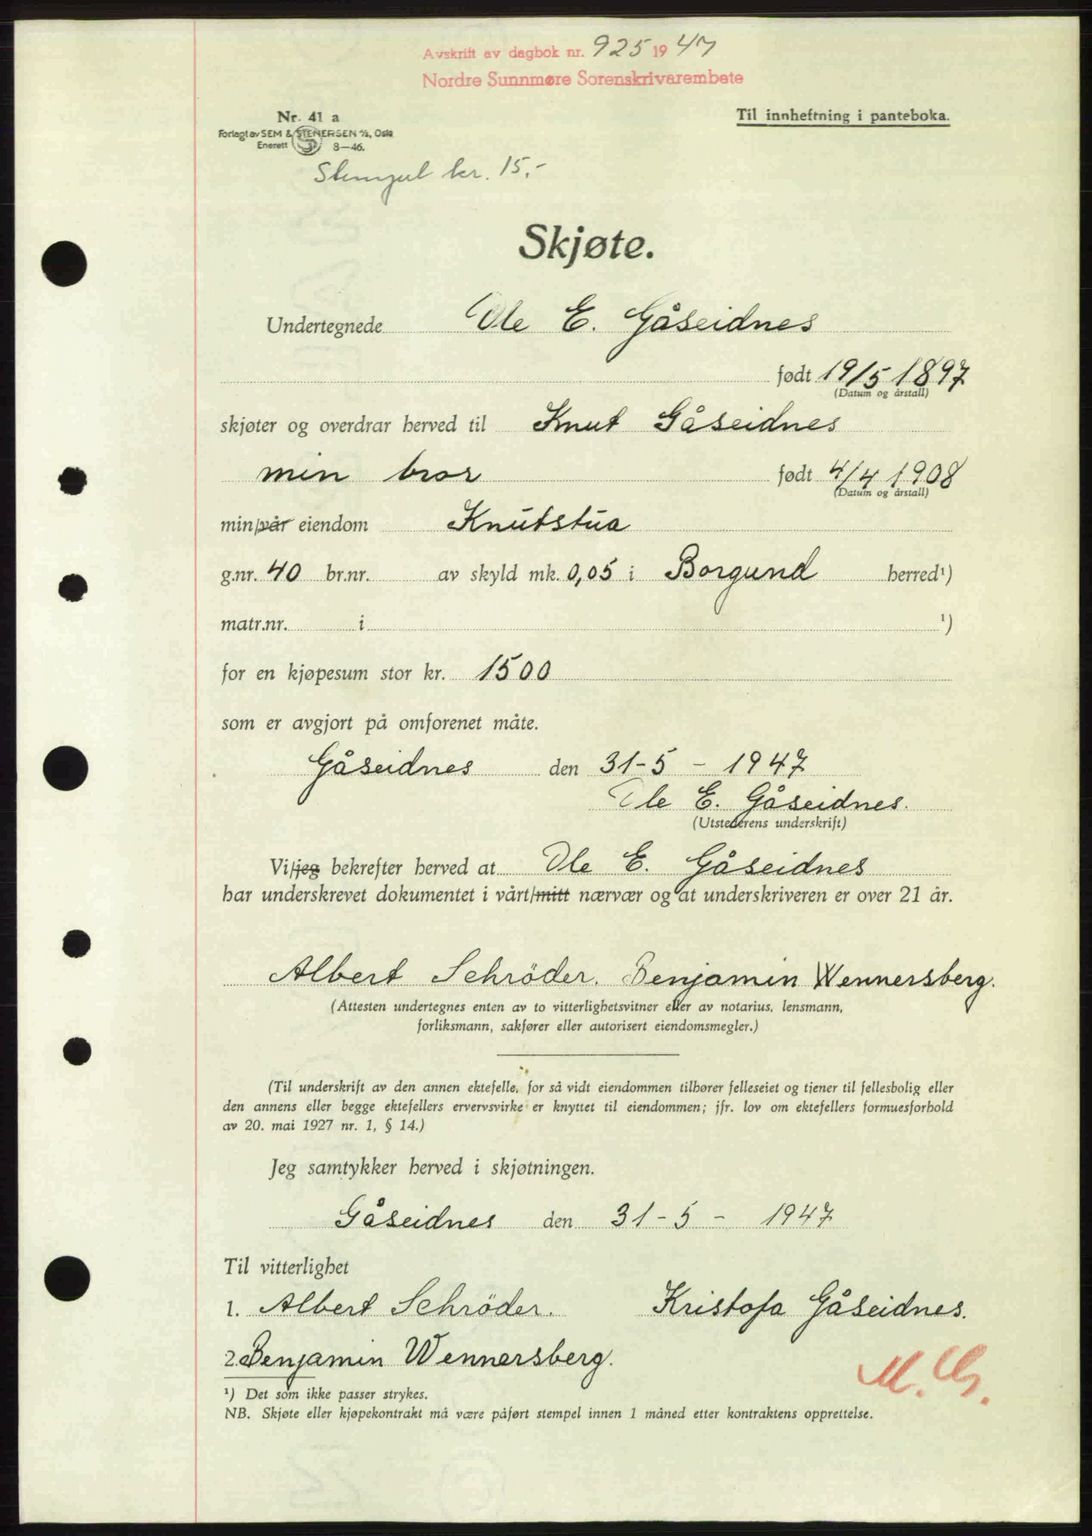 Avskrift av dagbok nr. 925 1947
Nordre Sunnmøre Sorenskrivarembete
Nr. 41 a
Til innheftning i panteboka.
Forlagt av SEM & STENERSEN A/S, Oslo
Enerett S 8—46.
Stempel kr. 15.-
Skjøte.
Undertegnede Ole E. Gåseidnes
født 19/5 1897
(Datum og årstall)
skjøter og overdrar herved til Knut Gåseidnes
min bror født 4/4 1908
(Datum og årstall)
min/vår eiendom Knutstua
g.nr. 40 br.nr. av skyld mk. 0,05 i Borgund herred¹)
matr.nr. i ¹)
for en kjøpesum stor kr. 1500
som er avgjort på omforenet måte.
Gåseidnes den 31-5 - 1947
Ole E. Gåseidnes.
(Utstederens underskrift)
Vi/jeg bekrefter herved at Ole E. Gåseidnes
har underskrevet dokumentet i vårt/mitt nærvær og at underskriveren er over 21 år.
Albert Schröder. Benjamin Wennersberg.
(Attesten undertegnes enten av to vitterlighetsvitner eller av notarius, lensmann,
forliksmann, sakfører eller autorisert eiendomsmegler.)
(Til underskrift av den annen ektefelle, for så vidt eiendommen tilhører felleseiet og tjener til fellesbolig eller
den annens eller begge ektefellers ervervsvirke er knyttet til eiendommen; jfr. lov om ektefellers formuesforhold
av 20. mai 1927 nr. 1, § 14.)
Jeg samtykker herved i skjøtningen.
Gåseidnes den 31-5 - 1947
Til vitterlighet
1. Albert Schröder. Kristofa Gåseidnes.
2. Benjamin Wennersberg.
¹) Det som ikke passer strykes.
NB. Skjøte eller kjøpekontrakt må være påført stempel innen 1 måned etter kontraktens opprettelse.